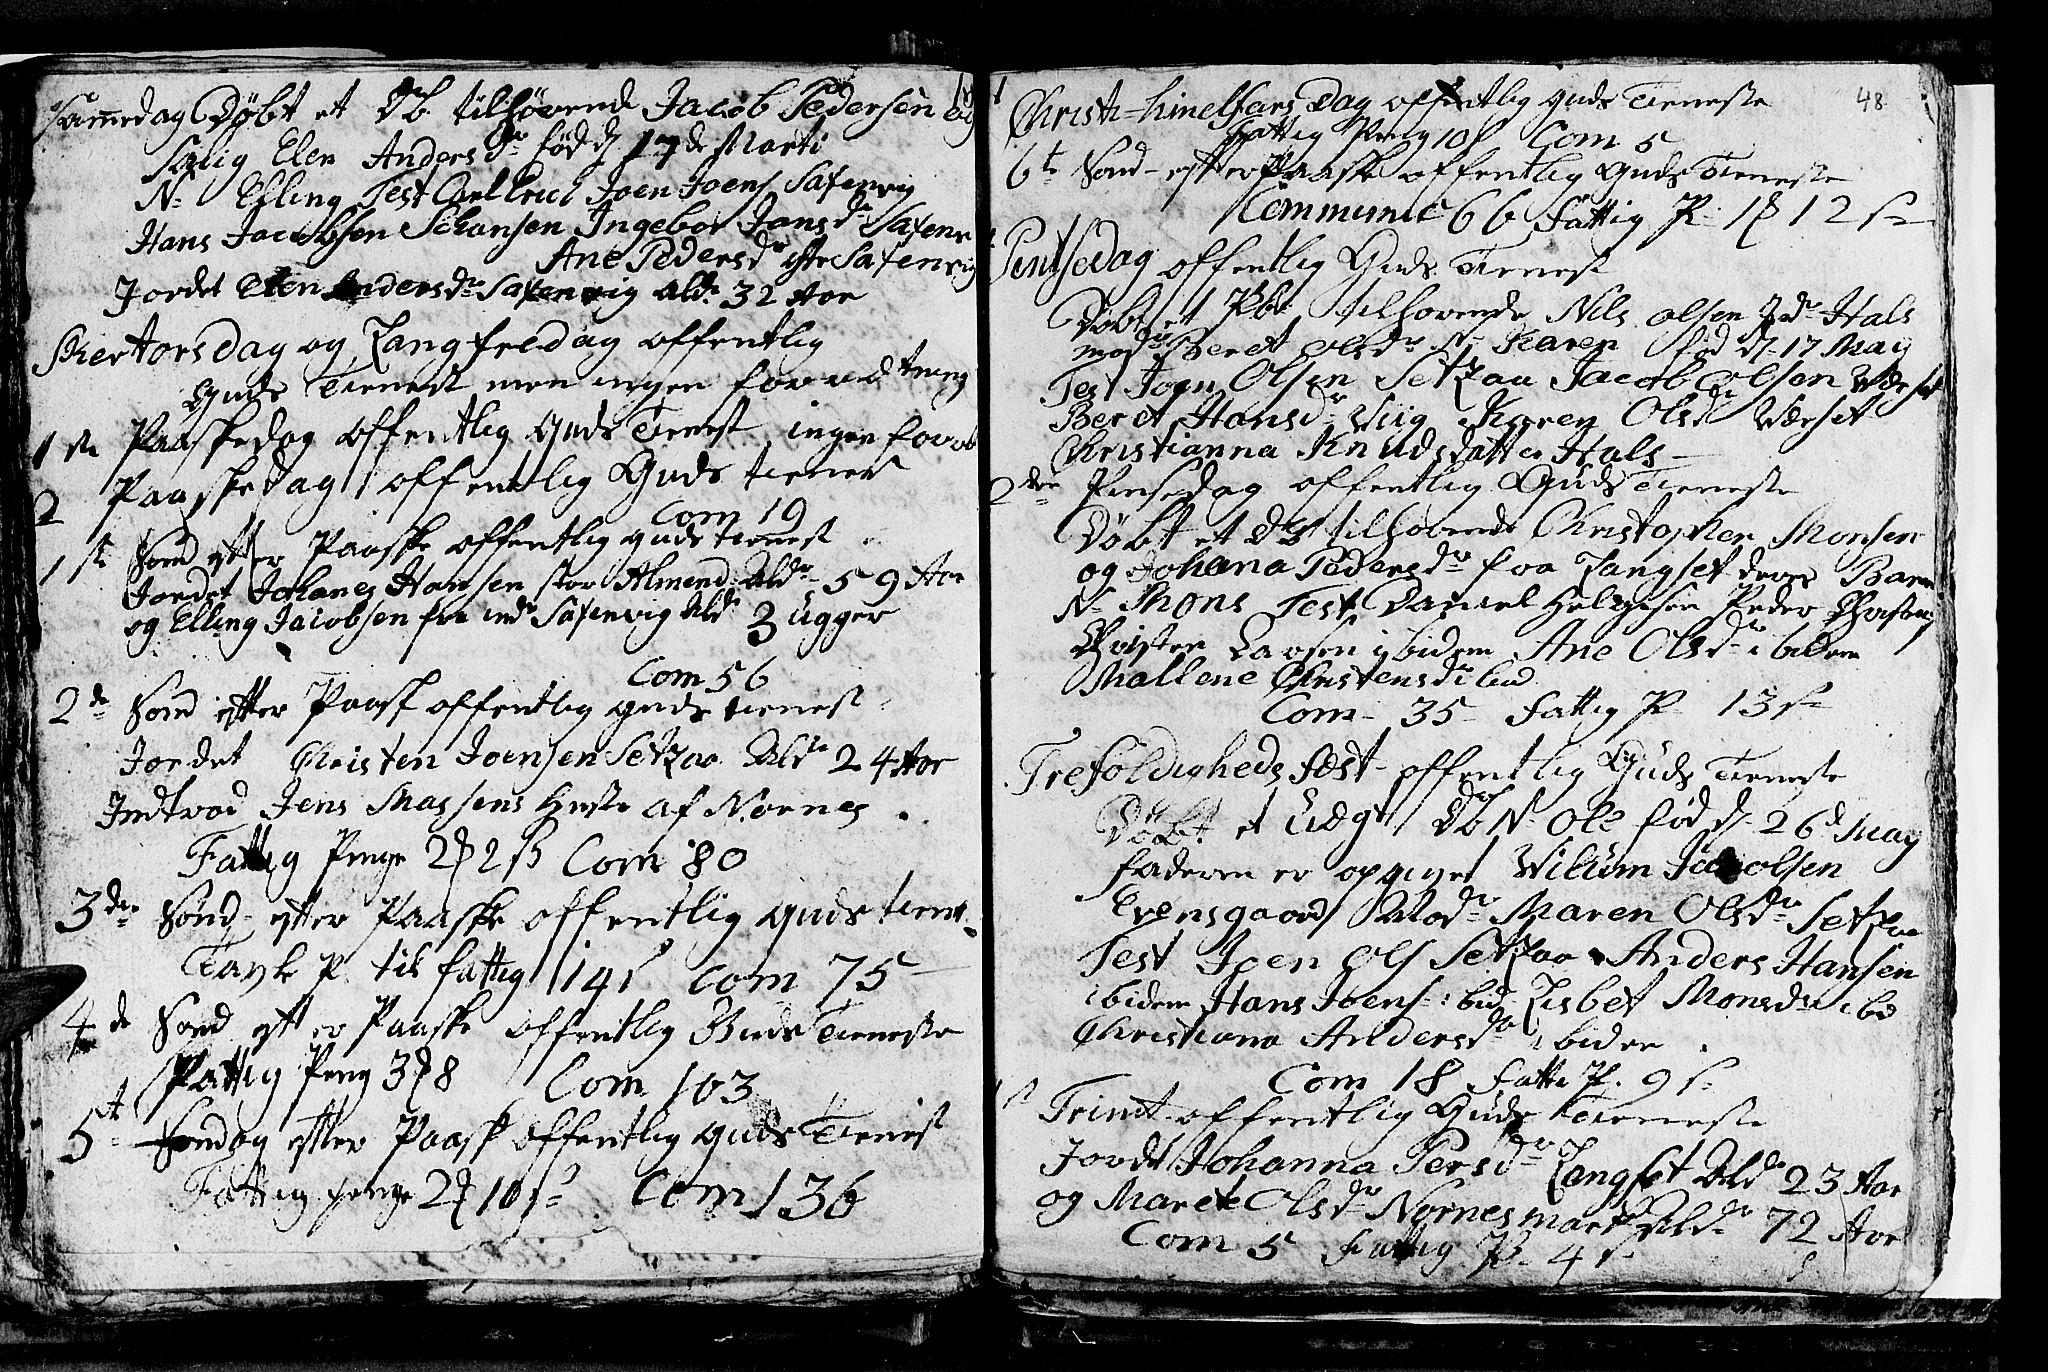 Samedag Døbt et Db tilhørend Jacob Pedersen og
Salig Elen Andersdr fød d 17de Marti
N. Elling Test Carl Erich Joen Joens Saxenvig
Hans Jacobsen Johansen Ingebor Jonsdr Saxenv
Ane Pedersdr Saxenvig
Jordet Elen Andersdr Saxenvig Aldr 32 Aar
Skiertorsdag og Langfredag offentlig
Guds Tienest men ingen forretning
1st Paaskedag offentlig Guds Tienest ingen forret
2 Paaskedag offentlig Guds tienest
Com 19
1st Sond efter Paaske offentlig guds tienest
Jordet Johanes Hansen stor Almend: Aldr 59 Aar
og Elling Jacobsen fra Saxenvig Ald 3 ugger
Com 56
2de Sond efter Paask offentlig guds tienest
Jordet Christen Joensen Setzaa Aldr 24 Aar
Indtrod Jens Massens Hustr af Nornes
Fattig Penge 2 2 s Com 80
3die Sønd efter Paaske offentlig guds tienst
P til fattig 14 s Com 75
4de Sond efter Paaske offentlig Guds Tieneste
Fattig Peng 3 8 Com 103
5t Sondag efter Paask offentlig guds Tienist
Fattig penge 2 10 s Com 136
48
Christi-himelfars Dag offentlig guds Tieneste
Fattig Peng 10 s Com 5
6te Sond efter Paaske offentlig Guds Tieneste
Communic 66 Fattig P 1 12 s
Pintsedag offentlig Guds Tienest
Døbt et Pb tilhorende Nils Olsen Hals
modr Beret Olsdr N. Karen fød d. 17 May
Test Joen Olsen Setzaa Jacob Olsen Værset
Beret Hansdr Viig Karen Olsdr Værset
Christianna Knudsdatter Hals
2den Pinsedag offentlig Guds Tieneste
Døbt et Db tilhorende Christopher Monsen
og Johana Pedersdr fra Langset deres Barn
N. Mons Test Daniel Helgesen Peder Christens
Christen Larsen ibidem Ane Olsdr ibidem
Mallene Christensdr ibid
Com 35 Fattig P 13 s
Trefoldigheds fæst offentlig Guds Tieneste
Døbt et Uægt Db N. Ole fød d 26de May
faderen er opgivet Wilium Jacobsen
Evensgaard Modr Maren Olsdr Setzaa
Test Joen Ols Setzaa Anders Hansen
ibidem Hans Joens ibid Lisbet Monsdr ibd
Christiana Andersdr ibiden
Com 18 Fatti P. 9 s
1st Trinit offentlig Guds Tieneste
Jordet Johanna Persdr Langset Ald 23 Aar
og Marete Olsdr Nornes mark Aldr 72 Aar
Com 5 Fattig P. 4 s